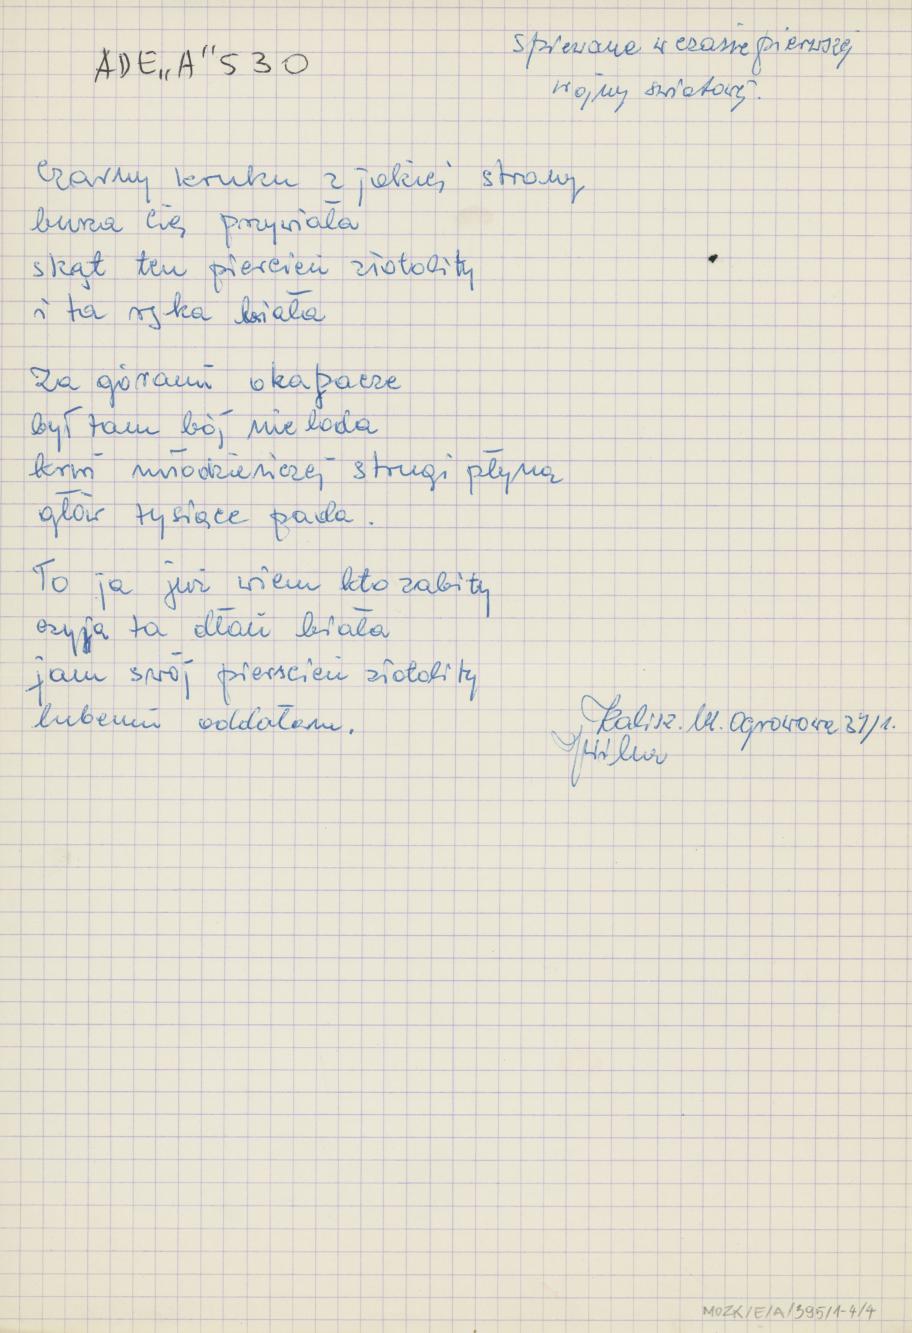 ADE„A"530
Spiewane w czasie pierwszej
wojny swiatowej.
Czarny kruku z jakiej strony
buza Cię przywiała
skąt ten piercień złotolity
i ta rzka biała
Za górami okapacze
był tam bój nielada
krwi młodzieńczej strugi płyną
głów tysiące pada.
To ja już wiem kto zabity
czyja ta dłoń biała
jam swój pierscień złotolity
lubemu oddałam.
Kalisz. Ul. Ogrodowa 27/1.
MOZK/E/A/395/1-4/4